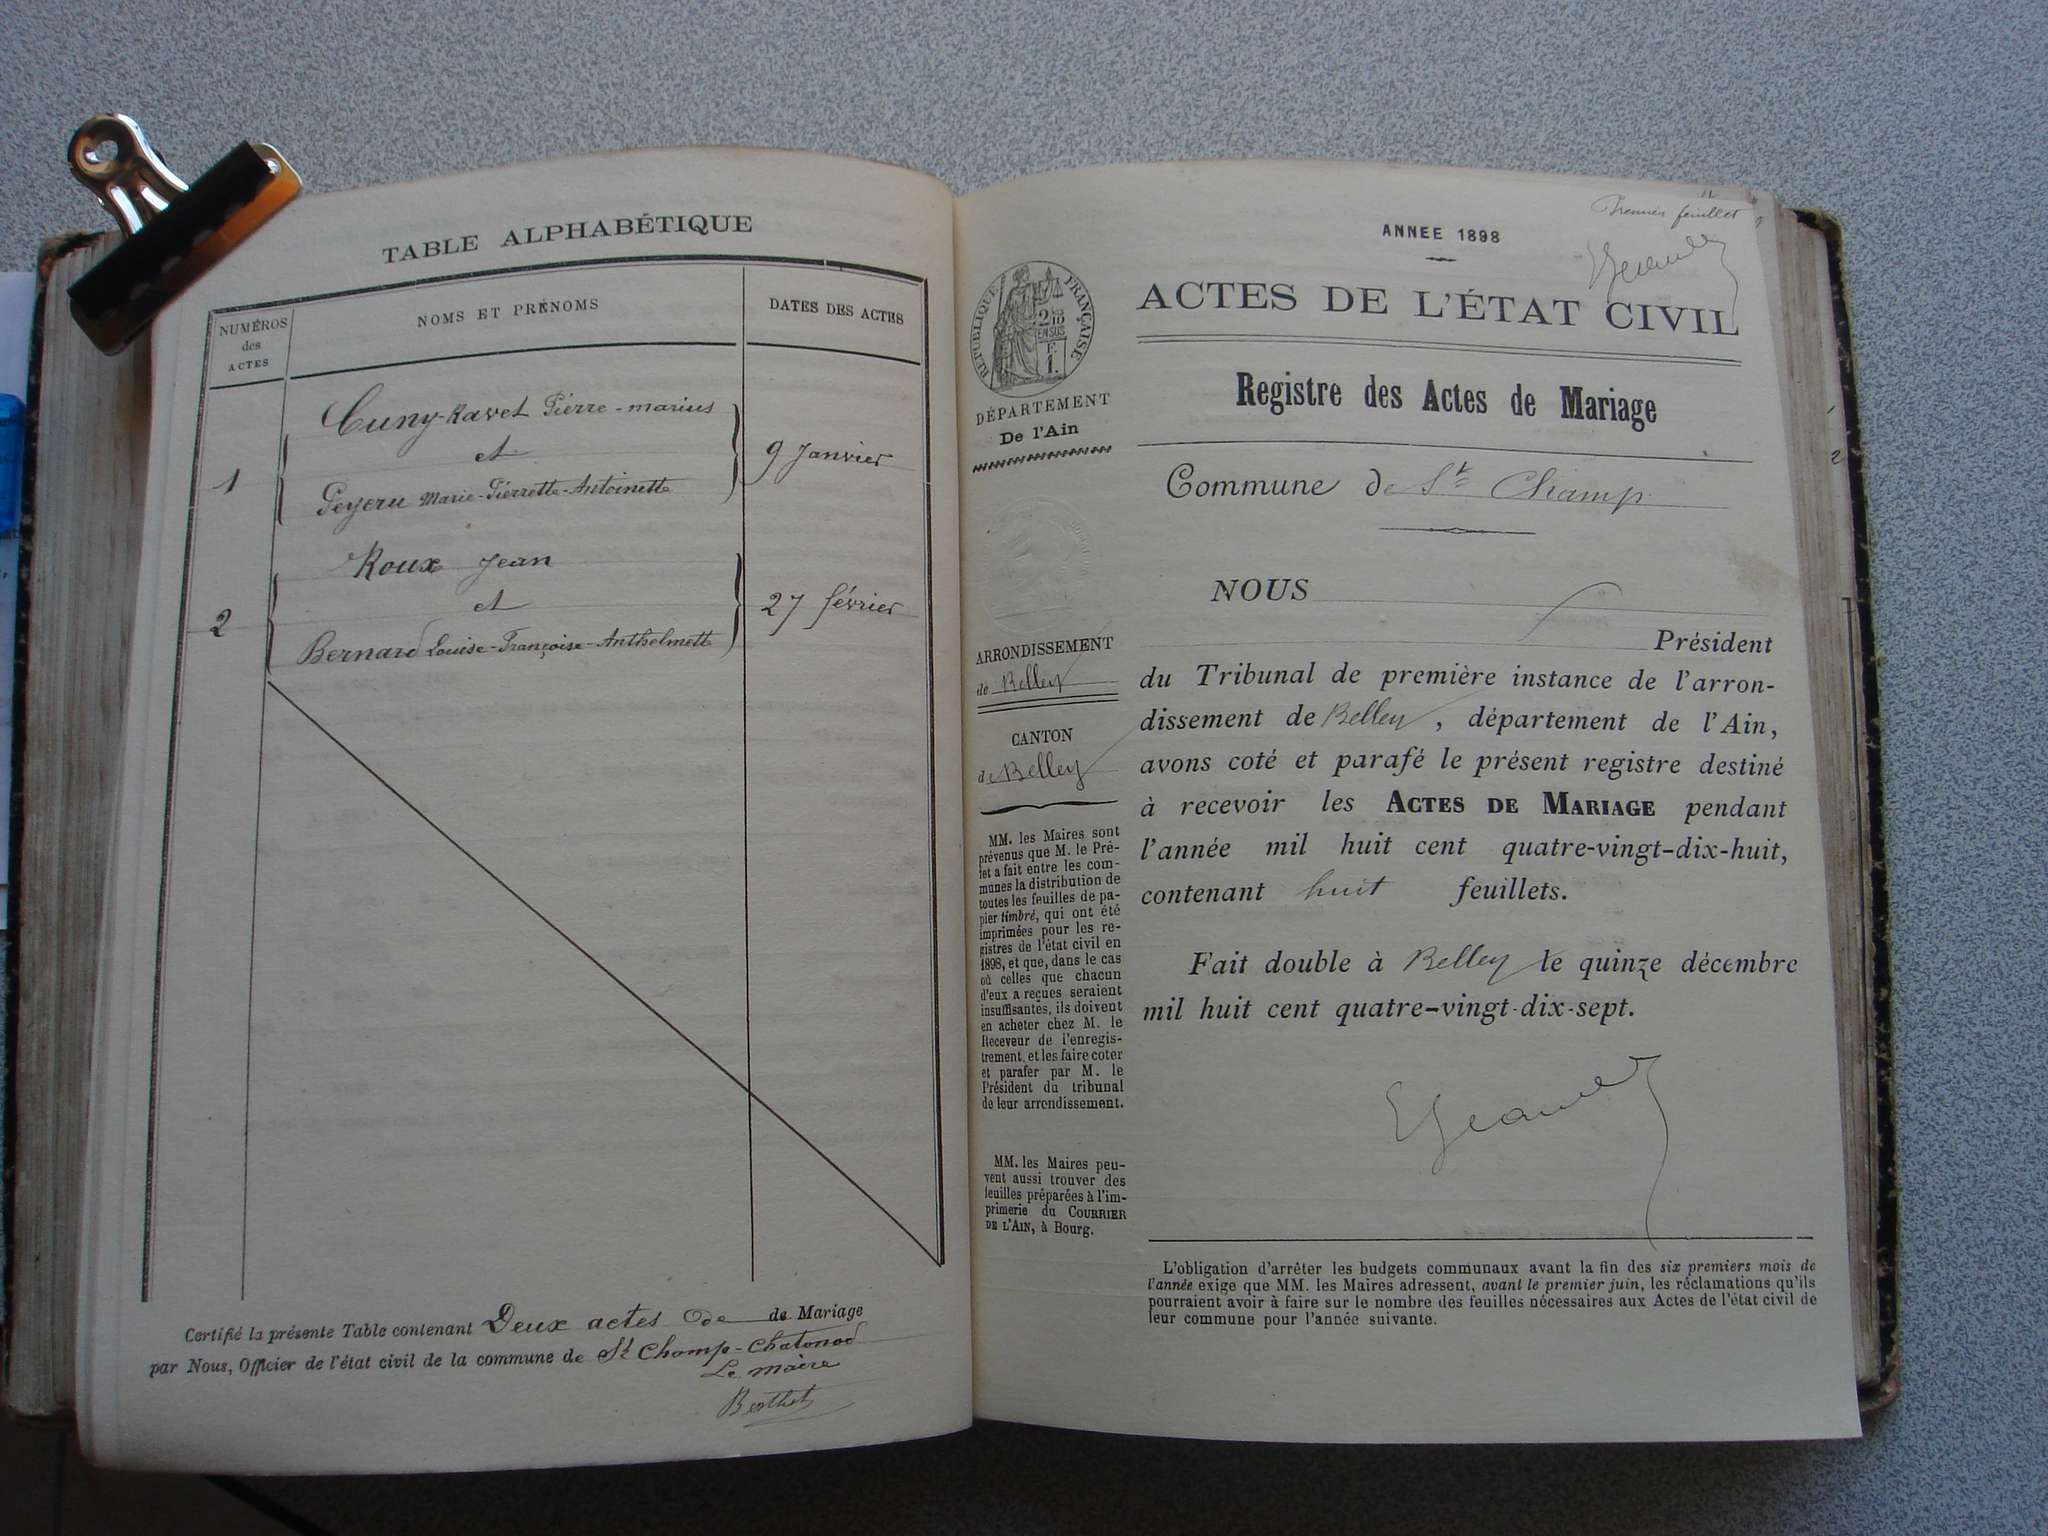 TABLE ALPHABÉTIQUE
NUMÉROS
des
ACTES
NOMS ET PRÉNOMS
DATES DES ACTES
Cuny-Ravet Pierre-marius
et
1
9 Janvier
Peyeru Marie-Pierrette-Antoinette
Roux Jean
et
2
27 février
Bernard Louise-Françoise-Anthelmette
Certifié la présente Table contenant Deux actes de de Mariage
par Nous, Officier de l'état civil de la commune de St Champ-Chatonod
Le maire
Berthet
Premier feuillet
ANNEE 1898
ACTES DE L'ÉTAT CIVIL
RÉPUBLIQUE FRANÇAISE
DÉPARTEMENT
De l'Ain
Registre des Actes de Mariage
Commune de St Champ
NOUS
Président
du Tribunal de première instance de l'arron-
dissement de Belley, département de l'Ain,
avons coté et parafé le présent registre destiné
à recevoir les ACTES DE MARIAGE pendant
l'année mil huit cent quatre-vingt-dix-huit,
contenant huit feuillets.
Fait double à Belley le quinze décembre
mil huit cent quatre-vingt-dix-sept.
ARRONDISSEMENT
de Belley
CANTON
de Belley
MM. les Maires sont
prévenus que M. le Pré-
fet a fait entre les com-
munes la distribution de
toutes les feuilles de pa-
pier timbré, qui ont été
imprimées pour les re-
gistres de l'état civil en
1898, et que, dans le cas
où celles que chacun
d'eux a reçues seraient
insuffisantes, ils doivent
en acheter chez M. le
Receveur de l'enregis-
trement, et les faire coter
et parafer par M. le
Président du tribunal
de leur arrondissement.
MM. les Maires peu-
vent aussi trouver des
feuilles préparées à l'im-
primerie du COURRIER
DE L'AIN, à Bourg.
L'obligation d'arrêter les budgets communaux avant la fin des six premiers mois de
l'année exige que MM. les Maires adressent, avant le premier juin, les réclamations qu'ils
pourraient avoir à faire sur le nombre des feuilles nécessaires aux Actes de l'état civil de
leur commune pour l'année suivante.